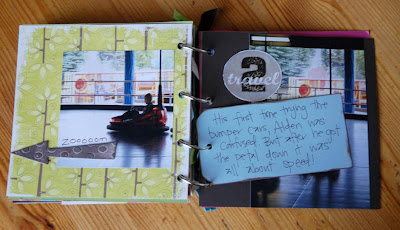 zoooooom
2
travel
His first time trying the
bumper cars, Alden was
confused. But after he got
the petal down it was
all about speed!